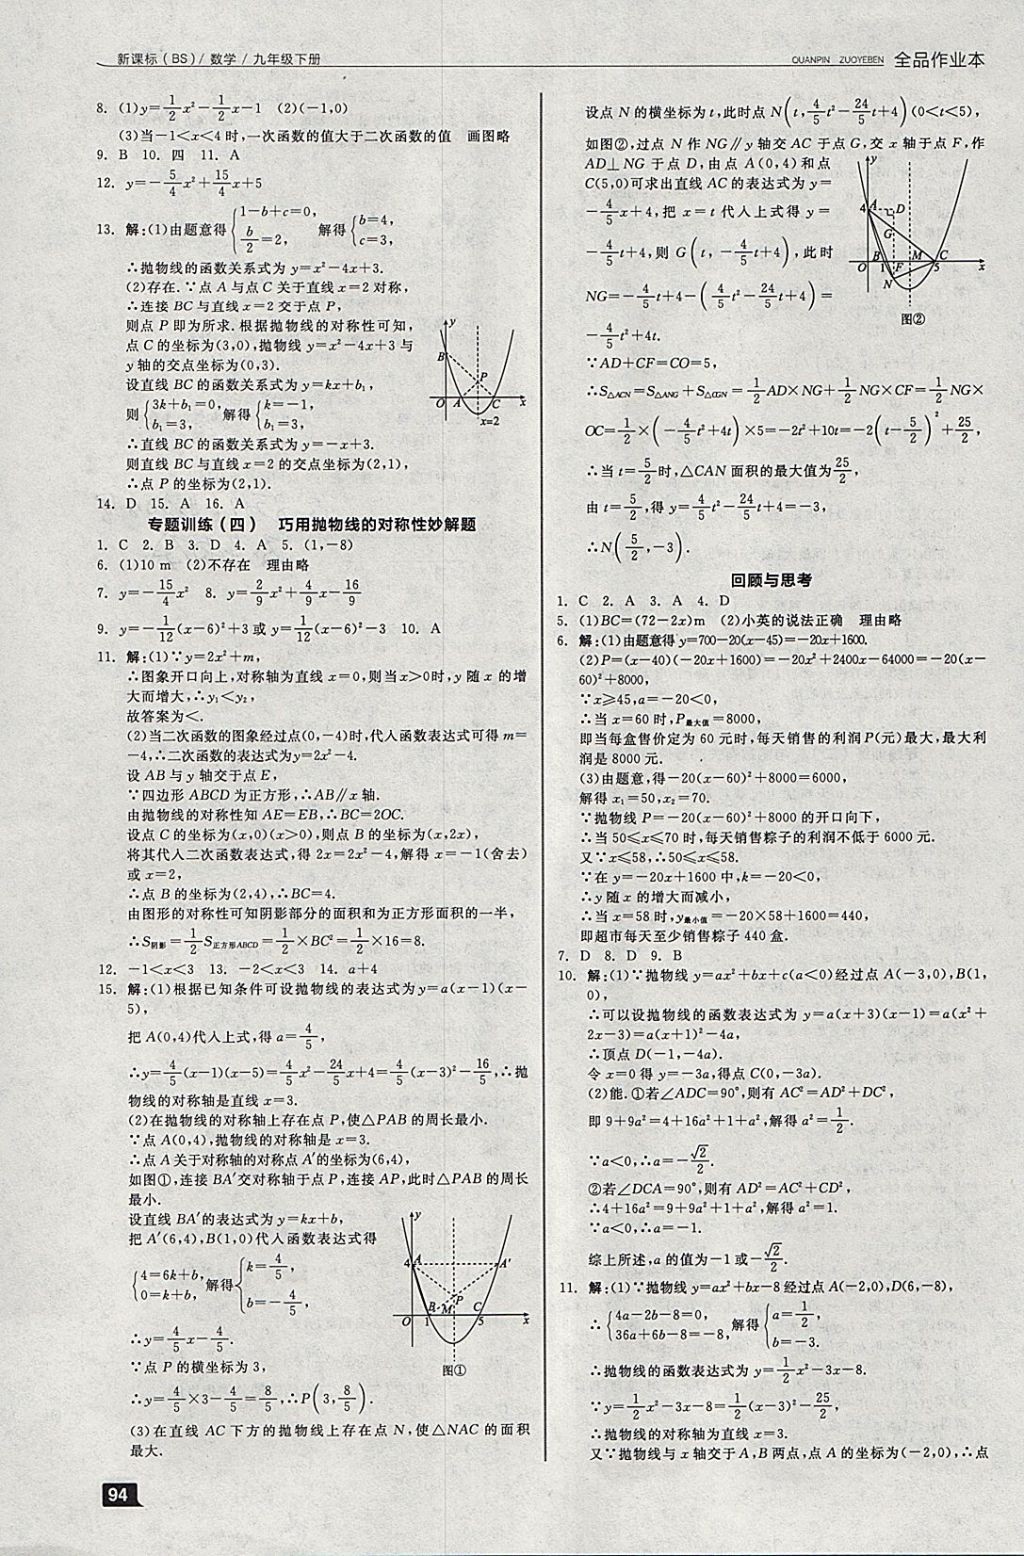 新课标(BS)/数学/九年级下册
QUANPIN ZUOYEBEN 全品作业本
8. (1)y=1/2x²-1/2x-1 (2)(-1,0)
(3)当-1<x<4时,一次函数的值大于二次函数的值 画图略
9. B 10. 四 11. A
12. y=-5/4x²+15/4x+5
13. 解:(1)由题意得{1-b+c=0, b/2=2, 解得{b=4, c=3,
∴抛物线的函数关系式为y=x²-4x+3.
(2)存在.∵点A与点C关于直线x=2对称,
∴连接BC与直线x=2交于点P,
则点P即为所求.根据抛物线的对称性可知,
点C的坐标为(3,0),抛物线y=x²-4x+3与
y轴的交点坐标为(0,3).
设直线BC的函数关系式为y=kx+b₁,
则{3k+b₁=0, b₁=3, 解得{k=-1, b₁=3,
∴直线BC的函数关系式为y=-x+3.
则直线BC与直线x=2的交点坐标为(2,1),
∴点P的坐标为(2,1).
y B P O A C x x=2
14. D 15. A 16. A
专题训练(四) 巧用抛物线的对称性妙解题
1. C 2. B 3. D 4. A 5. (1,-8)
6. (1)10 m (2)不存在 理由略
7. y=-15/4x² 8. y=2/9x²+4/9x-16/9
9. y=-1/12(x-6)²+3或y=1/12(x-6)²-3 10. A
11. 解:(1)∵y=2x²+m,
∴图象开口向上,对称轴为直线x=0,则当x>0时,y随x的增
大而增大,∴y₁<y₂,
故答案为<.
(2)当二次函数的图象经过点(0,-4)时,代入函数表达式可得m=
-4,∴二次函数的表达式为y=2x²-4.
设AB与y轴交于点E,
∵四边形ABCD为正方形,∴AB∥x轴.
由抛物线的对称性知AE=EB,∴BC=2OC.
设点C的坐标为(x,0)(x>0),则点B的坐标为(x,2x),
将其代入二次函数表达式,得2x=2x²-4,解得x=-1(舍去)
或x=2,
∴点B的坐标为(2,4),∴BC=4.
由图形的对称性可知阴影部分的面积和为正方形面积的一半,
∴S阴影=1/2S正方形ABCD=1/2×BC²=1/2×16=8.
12. -1<x<3 13. -2<x<3 14. a+4
15. 解:(1)根据已知条件可设抛物线的表达式为y=a(x-1)(x-
5),
把A(0,4)代入上式,得a=4/5,
∴y=4/5(x-1)(x-5)=4/5x²-24/5x+4=4/5(x-3)²-16/5,∴抛
物线的对称轴是直线x=3.
(2)在抛物线的对称轴上存在点P,使△PAB的周长最小.
∵点A(0,4),抛物线的对称轴是x=3.
∴点A关于对称轴的对称点A′的坐标为(6,4),
如图①,连接BA′交对称轴于点P,连接AP,此时△PAB的周长
最小.
设直线BA′的表达式为y=kx+b,
把A′(6,4),B(1,0)代入函数表达式得
{4=6k+b, 0=k+b, 解得{k=4/5, b=-4/5,
∴y=4/5x-4/5.
∵点P的横坐标为3,
∴y=4/5×3-4/5=8/5,∴P(3,8/5).
y 4 A A′ P B M C O 1 5 x
图①
(3)在直线AC下方的抛物线上存在点N,使△NAC的面积
最大.
94
设点N的横坐标为t,此时点N(t,4/5t²-24/5t+4)(0<t<5),
如图②,过点N作NG∥y轴交AC于点G,交x轴于点F,作
AD⊥NG于点D,由点A(0,4)和点
C(5,0)可求出直线AC的表达式为y=
-4/5x+4,把x=t代入上式得y=
-4/5t+4,则G(t,-4/5t+4),此时
NG=-4/5t+4-(4/5t²-24/5t+4)=
-4/5t²+4t.
y 4 A D G B M C O 1 F 5 x N
图②
∵AD+CF=CO=5,
∴S△ACN=S△ANG+S△CGN=1/2AD×NG+1/2NG×CF=1/2NG×
OC=1/2×(-4/5t²+4t)×5=-2t²+10t=-2(t-5/2)²+25/2,
∴当t=5/2时,△CAN面积的最大值为25/2,
由t=5/2,得y=4/5t²-24/5t+4=-3,
∴N(5/2,-3).
回顾与思考
1. C 2. A 3. A 4. D
5. (1)BC=(72-2x)m (2)小英的说法正确 理由略
6. 解:(1)由题意得y=700-20(x-45)=-20x+1600.
(2)P=(x-40)(-20x+1600)=-20x²+2400x-64000=-20(x-
60)²+8000,
∵x≥45,a=-20<0,
∴当x=60时,P最大值=8000,
即当每盒售价定为60元时,每天销售的利润P(元)最大,最大利
润是8000元.
(3)由题意,得-20(x-60)²+8000=6000,
解得x₁=50,x₂=70.
∵抛物线P=-20(x-60)²+8000的开口向下,
∴当50≤x≤70时,每天销售粽子的利润不低于6000元.
又∵x≤58,∴50≤x≤58.
∵在y=-20x+1600中,k=-20<0,
∴y随x的增大而减小,
∴当x=58时,y最小值=-20×58+1600=440,
即超市每天至少销售粽子440盒.
7. D 8. D 9. B
10. 解:(1)∵抛物线y=ax²+bx+c(a<0)经过点A(-3,0),B(1,
0),
∴可以设抛物线的函数表达式为y=a(x+3)(x-1)=a(x²+
2x-3)=a(x+1)²-4a,
∴顶点D(-1,-4a).
令x=0得y=-3a,得点C(0,-3a).
(2)能.①若∠ADC=90°,则有AC²=AD²+DC²,
即9+9a²=4+16a²+1+a²,解得a²=1/2.
∵a<0,∴a=-√2/2.
②若∠DCA=90°,则有AD²=AC²+CD²,
∴4+16a²=9+9a²+1+a²,解得a²=1.
∵a<0,∴a=-1.
综上所述,a的值为-1或-√2/2.
11. 解:(1)∵抛物线y=ax²+bx-8经过点A(-2,0),D(6,-8),
∴{4a-2b-8=0, 36a+6b-8=-8, 解得{a=1/2, b=-3.
∴抛物线的函数表达式为y=1/2x²-3x-8.
∵y=1/2x²-3x-8=1/2(x-3)²-25/2,
∴抛物线的对称轴为直线x=3.
又∵抛物线与x轴交于A,B两点,点A的坐标为(-2,0),∴点